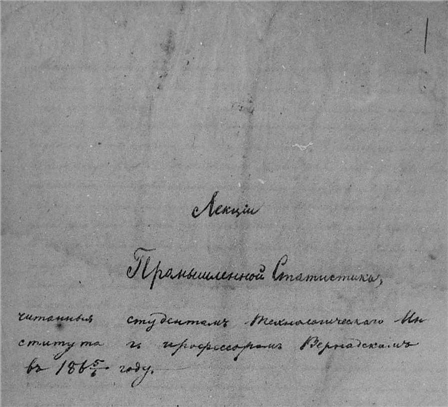 Лекціи
Промышленной Статистики,
читанныя студентамъ Технологическаго Ин
ститута г. профессоромъ Вернадскимъ
въ 186 5/6 году.